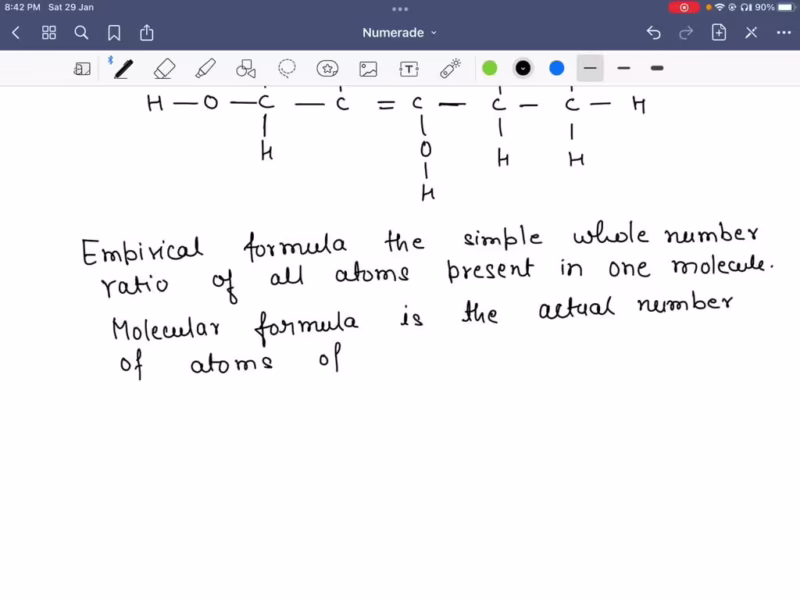 8:42 PM Sat 29 Jan
90%
Numerade
T
H — O — C — C = C — C — C — H
H O H H
H
Empirical formula the simple whole number
ratio of all atoms present in one molecule.
Molecular formula is the actual number
of atoms of